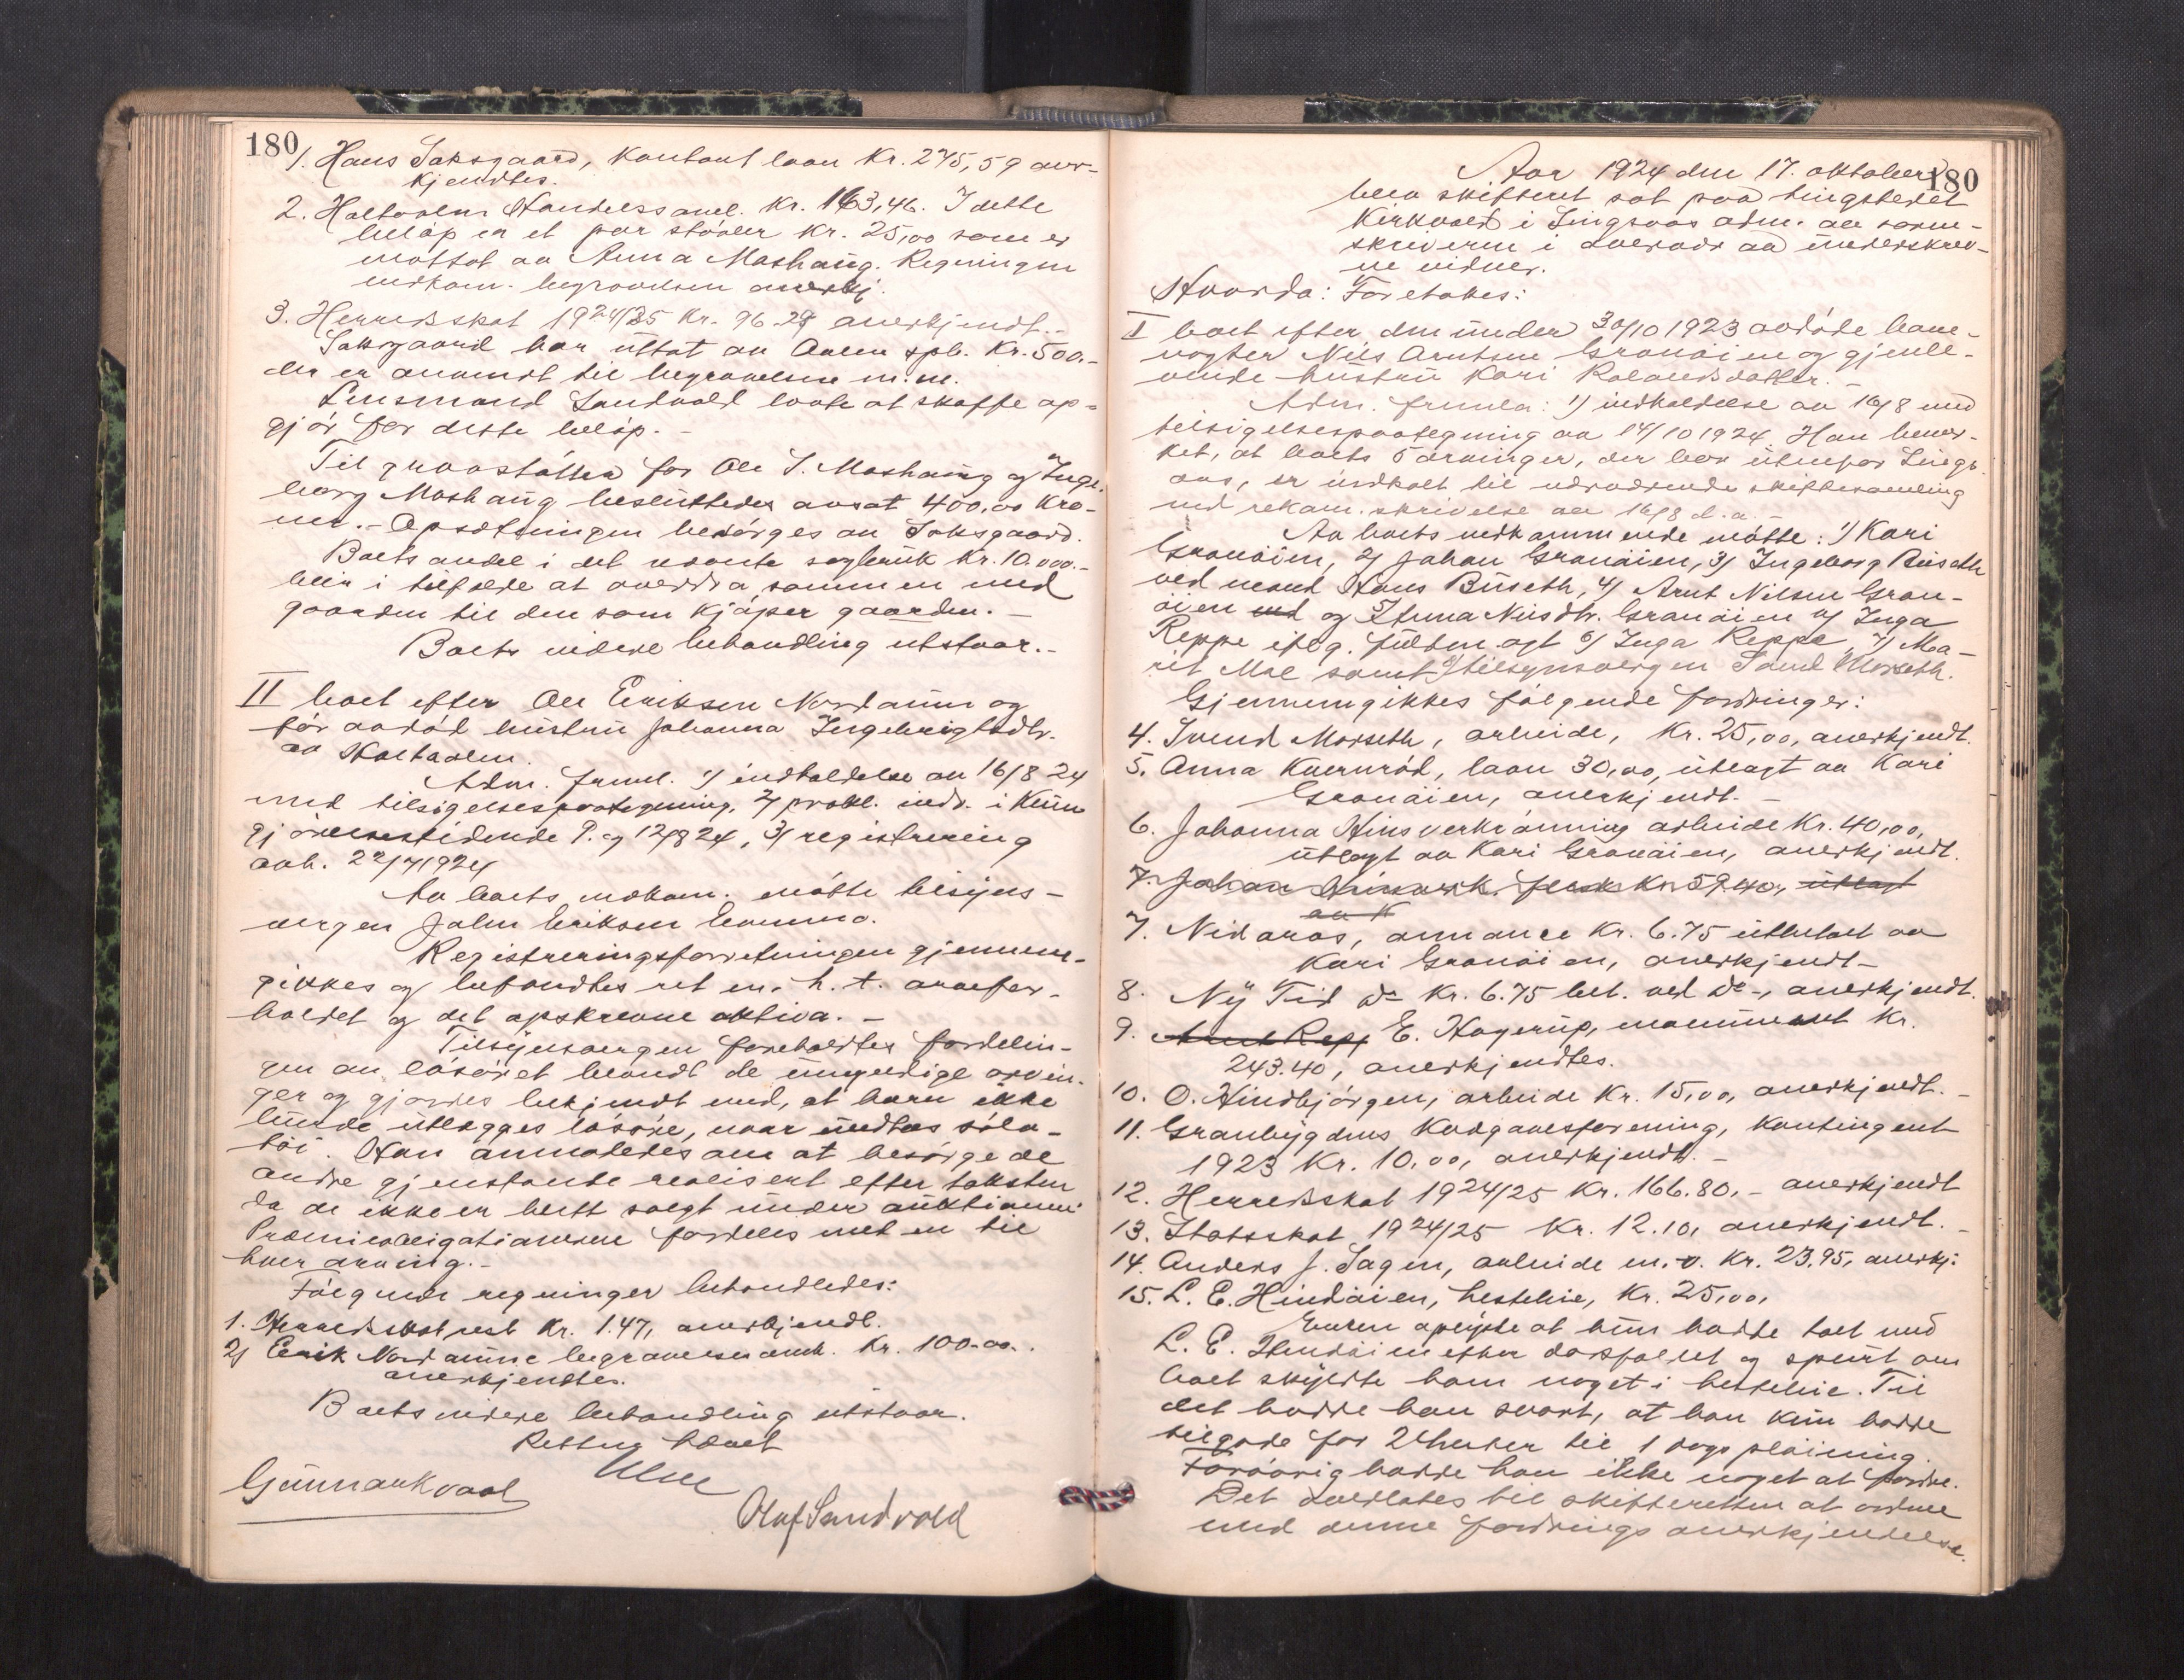 180
1. Hans Saksgaard, Kontant laan Kr. 275,59 aner-
kjendtes.
2. Haltaalen Handelssaml. Kr. 163,46. I dette
beløp er et par støvler Kr. 25,00 som er
mottat av Anna Moshaug. Regningen
vedkom. begravelsen anerkj.
3. Herredsskat 1924/25 Kr. 96.29 anerkjendt.-
Saksgaard har uttat av Aalen spb. Kr. 500.-
der er anvendt til begravelse m.m.
Lensmand Sandvold lovte at skaffe op-
gjør for dette beløp.-
Til gravstøtter for Ole J. Moshaug og Inge-
borg Moshaug besluttedes avsat 400,00 kro-
ner.- Opsætningen besørges av Saksgaard.
Boets andel i det nævnte sagbruk Kr. 10.000.-
blir i tilfælde at overdra sammen med
gaarden til den som kjøper gaarden.-
Boets videre behandling utstaar.-
II boet efter Ole Eriksen Nordaune og
før avdød hustru Johanna Ingebrigtsdtr.
av Haltaalen.
Adm. freml. 1) indkaldelse av 16/8 24
med tilsigelsespaategning, 2) prokl. indr. i Kun
gjørelsestidende 9. og 12/8 24, 3) registrering
avh. 22/7 1924
Av boets vedkom. møtte tilsyns-
vergen John Eriksen
Registreringsforretningen gjennem-
gikkes og befandtes ret m. h. t. arvefor-
holdet og det opskrevne aktiva.-
Tilsynsvergen foreholdtes fordelin-
gen av løsøret blandt de umyndige arvin-
ger og gjordes bekjendt med, at barn ikke
burde utlægges løsøre, naar undtas sølv-
tøi. Han anmodedes om at besørge de
andre gjenstande realisert efter taksten
da de ikke er blitt solgt under auktionen
Præmieobligationene fordeles med en til
hver arving.-
Følgende regninger behandledes:
1. Herredsskat rest Kr. 1.47, anerkjendt.
2) Erik Nordaune begravelsesomk. Kr. 100.00.
anerkjendtes.
Boets videre behandling utstaar.
Retten hævet
Gunnar Kvaal
Olaf Sandvold
180
Aar 1924 den 17. oktober
blev skifteret sat paa tingstedet
Kirkvold i Singsaas adm. av soren-
skriveren i overvær av underskrev-
ne vidner.
Hvorda: Foretokes:
I boet efter den under 30/10 1923 avdøde bane-
vogter Nils Arntsen Granøien og gjenle-
vende hustru Kari Roaldsdatter.-
Adm. fremla: 1) indkaldelse av 16/8 med
tilsigelsespaategning av 14/10 1924. Han bemer-
ket, at boets arvinger, der bor utenfor Sings-
aas, er indkaldt til nærværende skiftesamling
ved rekom. skrivelse av 16/8 d. a.-
Av boets vedkommende møtte: 1) Kari
Granøien, 2) Johan Granøien, 3) Ingeborg Buseth
ved mand Hans Buseth, 4) Arnt Nilsen Gran-
øien og Anna Nilsdtr. Granøien 5) Inga
Reppe iflg. fuldmagt 6) Inga Reppe, 7) Ma-
rit Moe samt 8) tilsynsvergen Svend Morseth.
Gjennemgikkes følgende fordringer:
4. Svend Morseth, arbeide, Kr. 25,00, anerkjendt.
5. Anna Kvernrød, laan 30,00, utlagt av Kari
Granøien, anerkjendt.-
6. Johanna arbeide Kr. 40,00,
utlagt av Kari Granøien, anerkjendt.
7. Johan flesk Kr 59.40, utlagt
av K
7. Nidaros, annonce Kr. 6.75 utbetalt av
Kari Granøien, anerkjendt-
8. Ny Tid Do Kr. 6.75 bet. ved Do-, anerkjendt.
9. Arnt Repp E. Hagerup, monument Kr.
243.40, anerkjendtes.
10. O. Hindbjørgen, arbeide Kr. 15,00, anerkjendt.-
11. Granbygdens Kontingent
1923 Kr. 10,00, anerkjendt.-
12. Herredsskat 1924/25 Kr. 166.80.- anerkjendt
13. Statsskat 1924/25 Kr. 12.10, anerkjendt.-
14. Anders J. Sagen, arbeide m. v. Kr. 23.95, anerkj:
15. L. E. Hindøien, hesteleie, Kr. 25,00,
Enken oplyste at hun hadde talt med
L. E. Hindøien efter dødsfaldet og spurt om
boet skyldte ham noget i hesteleie. Til
det hadde han svart, at han kun hadde
tilgode for 2 hester til 1 dags pløining.
Forøvrig hadde han ikke noget at fordre.
Det overlates til skifteretten at ordne
med denne fordrings anerkjendelse.